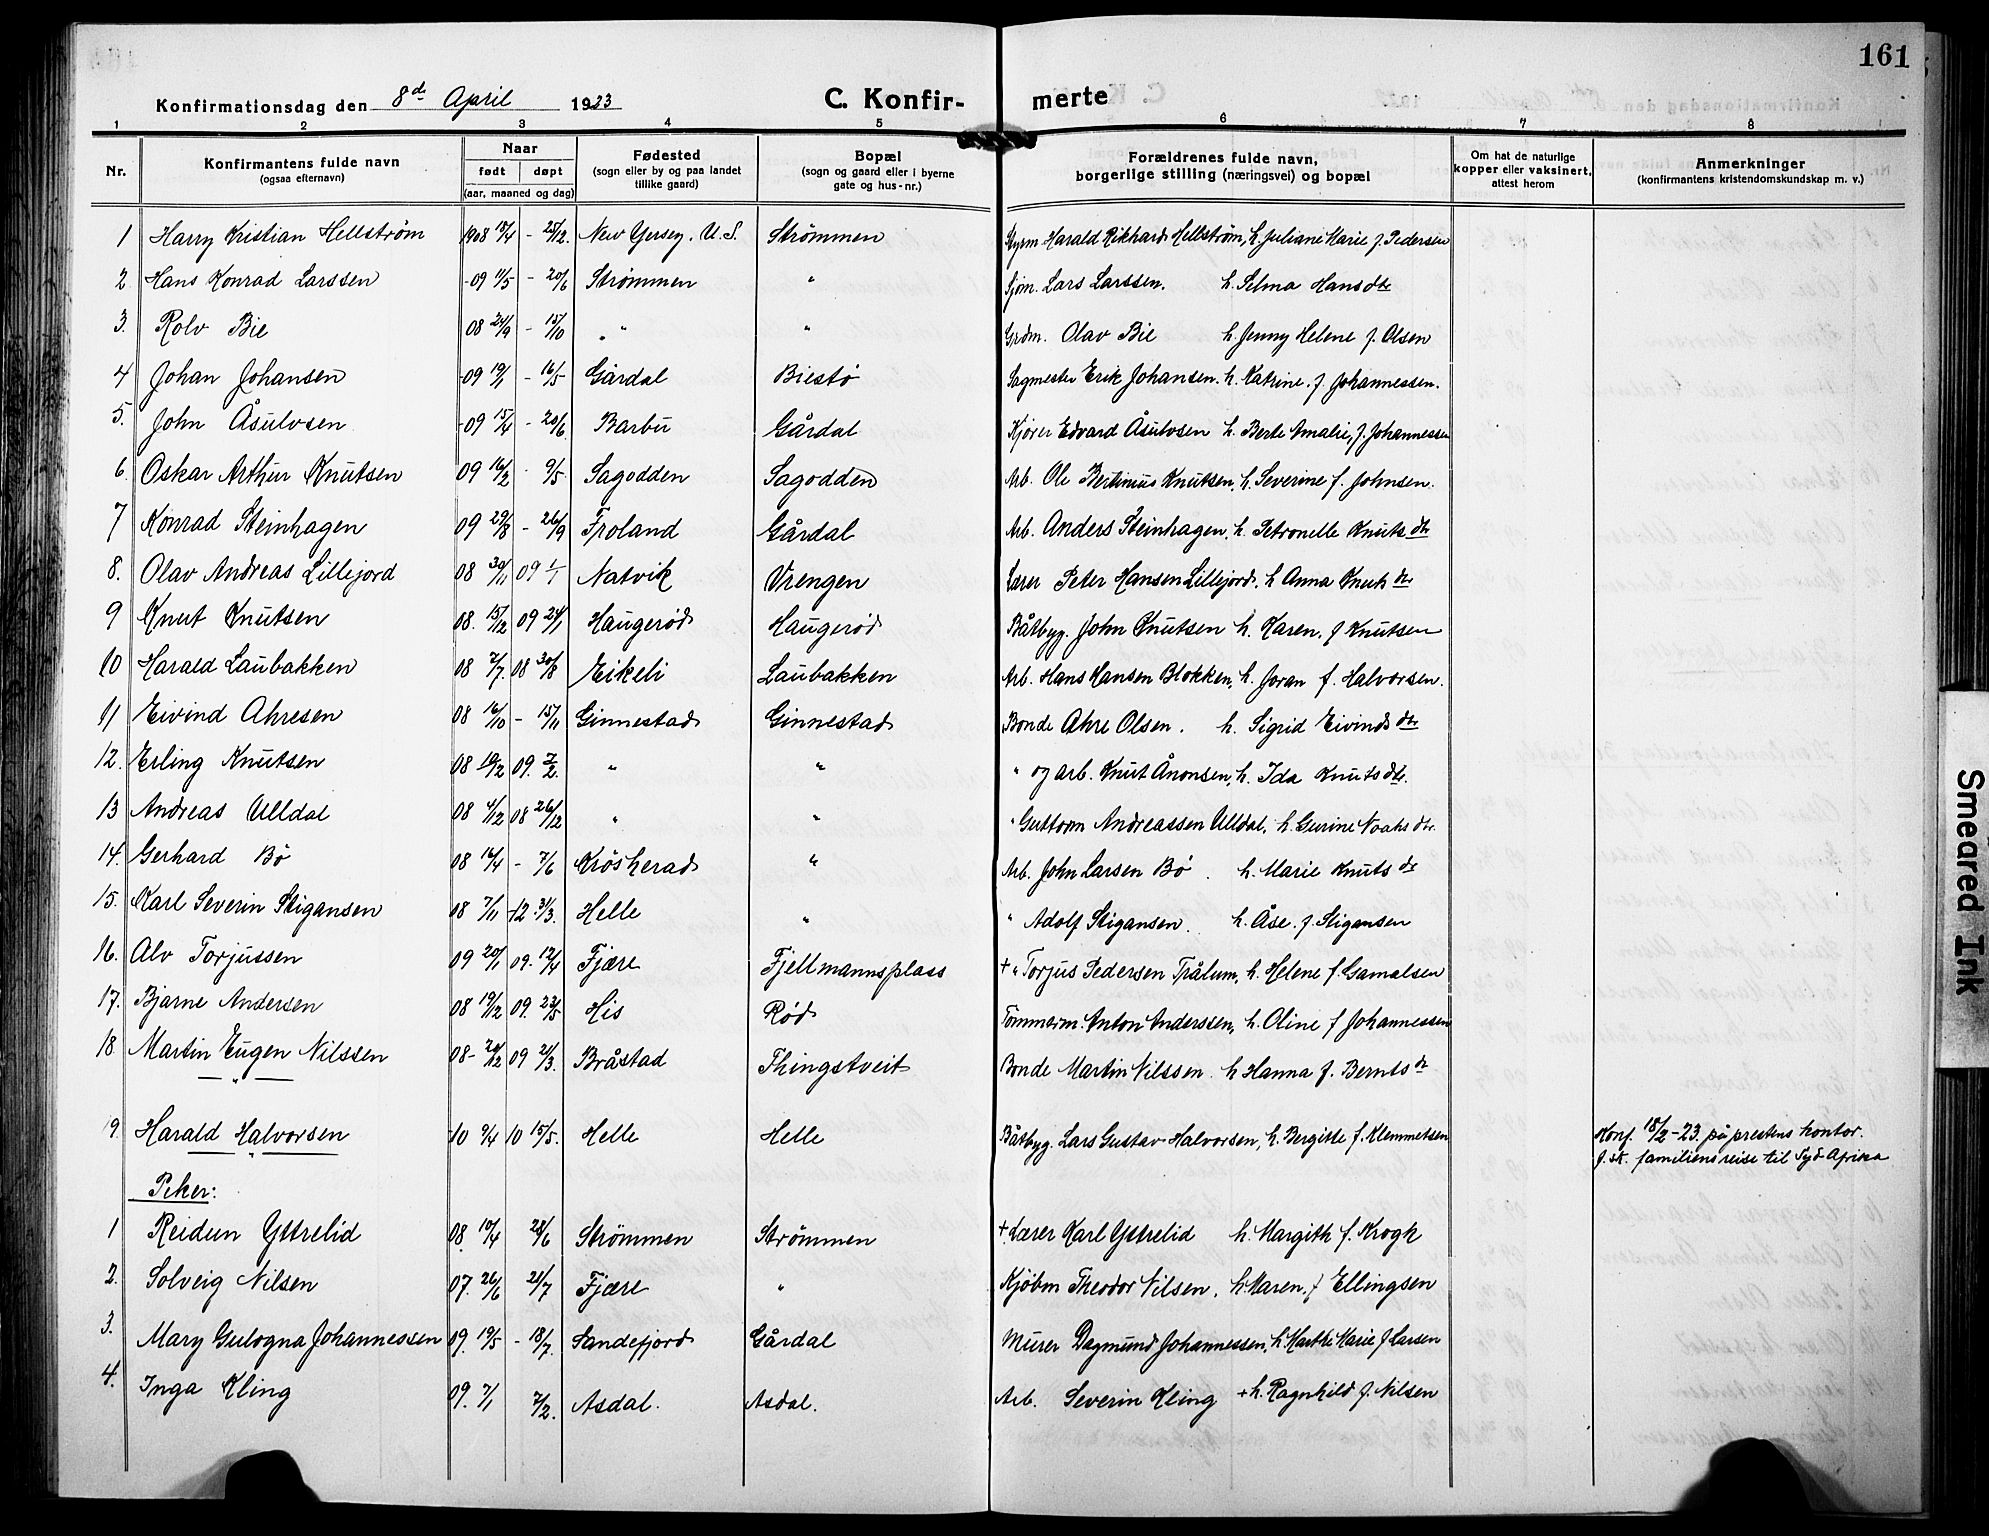 161
Konfirmationsdag den 8d April 1923 C. Konfir- merte
1 2 3 4 5 6 7 8
Nr. Konfirmantens fulde navn (ogsaa efternavn) Naar født døpt (aar, maaned og dag) Fødested (sogn eller by og paa landet tillike gaard) Bopæl (sogn og gaard eller i byerne gate og hus-nr.) Forældrenes fulde navn, borgerlige stilling (næringsvei) og bopæl Om hat de naturlige kopper eller vaksinert, attest herom Anmerkninger (konfirmantens kristendomskundskap m. v.)
1 Harry Kristian Hellstrøm 1908 18/4 - 25/12. New Yersey. U.S. Strømmen Styrm Harald Rikhard Hellstrøm, h. Juliane Marie f. Pedersen
2 Hans Konrad Larssen -09 11/5 - 20/6 Strømmen " Sjøm. Lars Larssen. h. Selma Hansdtr
3. Rolv Bie 08 24/9 - 15/10 " " Grdm. Olav Bie h. Jenny Helene f. Olsen
4 Johan Johansen -09 19/1 - 16/5 Gårdal Biestø Sagmester Erik Johansen. h. Katrine. f. Johannessen.
5. John Åsulvsen -09 15/4 - 20/6 Barbu Gårdal Kjører Edvard Åsulvsen h. Berte Amalie, f. Johannessen
6. Oskar Arthur Knutsen 09 16/2 - 9/5 Sagodden Sagodden Arb. Ole Bertinius Knutsen, h. Severine f. Johnsen.
7 Konrad Steinhagen 09 29/8 - 26/9 Froland Gårdal Arb. Anders Steinhagen, h. Petronelle Knutsdtr
8. Olav Andreas Lillejord 08 30/11 09 1/1 Natvik Vrengen Lærer Peter Hansen Lillejord, h Anna Knutsdtr
9 Knut Knutsen 08. 15/12 09 24/1 Haugerød Haugerød Båtbyg. John Knutsen h. Karen. f Knutsen
10 Harald Laubakken 08 7/7. 08 30/8 Eikeli Laubakken Arb. Hans Hansen Blokken, h. Joran f. Halvorsen.
11 Eivind Ahresen 08 16/10 - 15/11 Ginnestad Ginnestad Bonde Ahre Olsen. h. Sigrid Eivindsdtr
12. Erling Knutsen 08 19/2 09. 7/2. " " " og arb. Knut Ånonsen, h. Ida Knutsdtr.
13 Andreas Ulldal 08 4/12 08 26/12 " " " Guttorm Andreassen Ulldal, h. Gurine Noahsdtr.
14. Gerhard Bø 08 16/4 - 7/6 Krösherad " Arb. John Larsen Bø. h. Marie Knutsdtr
15. Karl Severin Stigansen 08 7/11 -12 3/3. Helle " " Adolf Stigansen. h. Åse. f. Stigansen
16. Alv Torjussen 09 20/1 09. 12/4 Fjære Fjellmannsplass + " Torjus Pedersen Trålum, h. Helene f. Gamalsen
17. Bjarne Andersen 08 19/12 09. 23/5 His Rød Tømmerm. Anton Anderssen, h. Oline f Johannessen
18 Martin Eugen Nilssen 08- 20/12 09 21/3. Bråstad Thingstveit Bonde Martin Nilssen. h Hanna f. Berntsdtr
— " —
19. Harald Halvorsen -10 9/4 10 15/5. Helle Helle Båtbyg. Lars Gustav Halvorsen, h. Bergitte f. Klemmetsen Konf. 18/2-23. på prestens kontor.
f. sk. familiens reise til Syd Afrika
Piker:
1 Reidun Yttrelid 08. 10/4 28/6 Strømmen Strømmen + Lærer Karl Yttrelid h. Margith f. Krogh
2. Solveig Nilsen 07. 26/6 21/7 Fjære " Kjøbm Theodor Nilsen, h. Maren. f Ellingsen
3. Mary Gulogna Johannessen 09. 19/5 - 18/7 Sandefjord Gårdal Murer Dagmund Johannessen, h. Marthe Marie f Larsen
4. Inga Kling 09. 7/1 7/2. Asdal. Asdal. Arb. Severin Kling + h. Ragnhild f. Nilsen
Smeared Ink